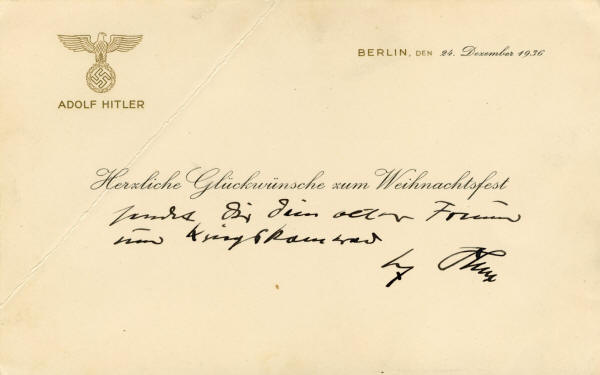 ADOLF HITLER
BERLIN, DEN 24. Dezember 1936
Herzliche Glückwünsche zum Weihnachtsfest
sendet Dir Dein alter
und Kriegskamerad